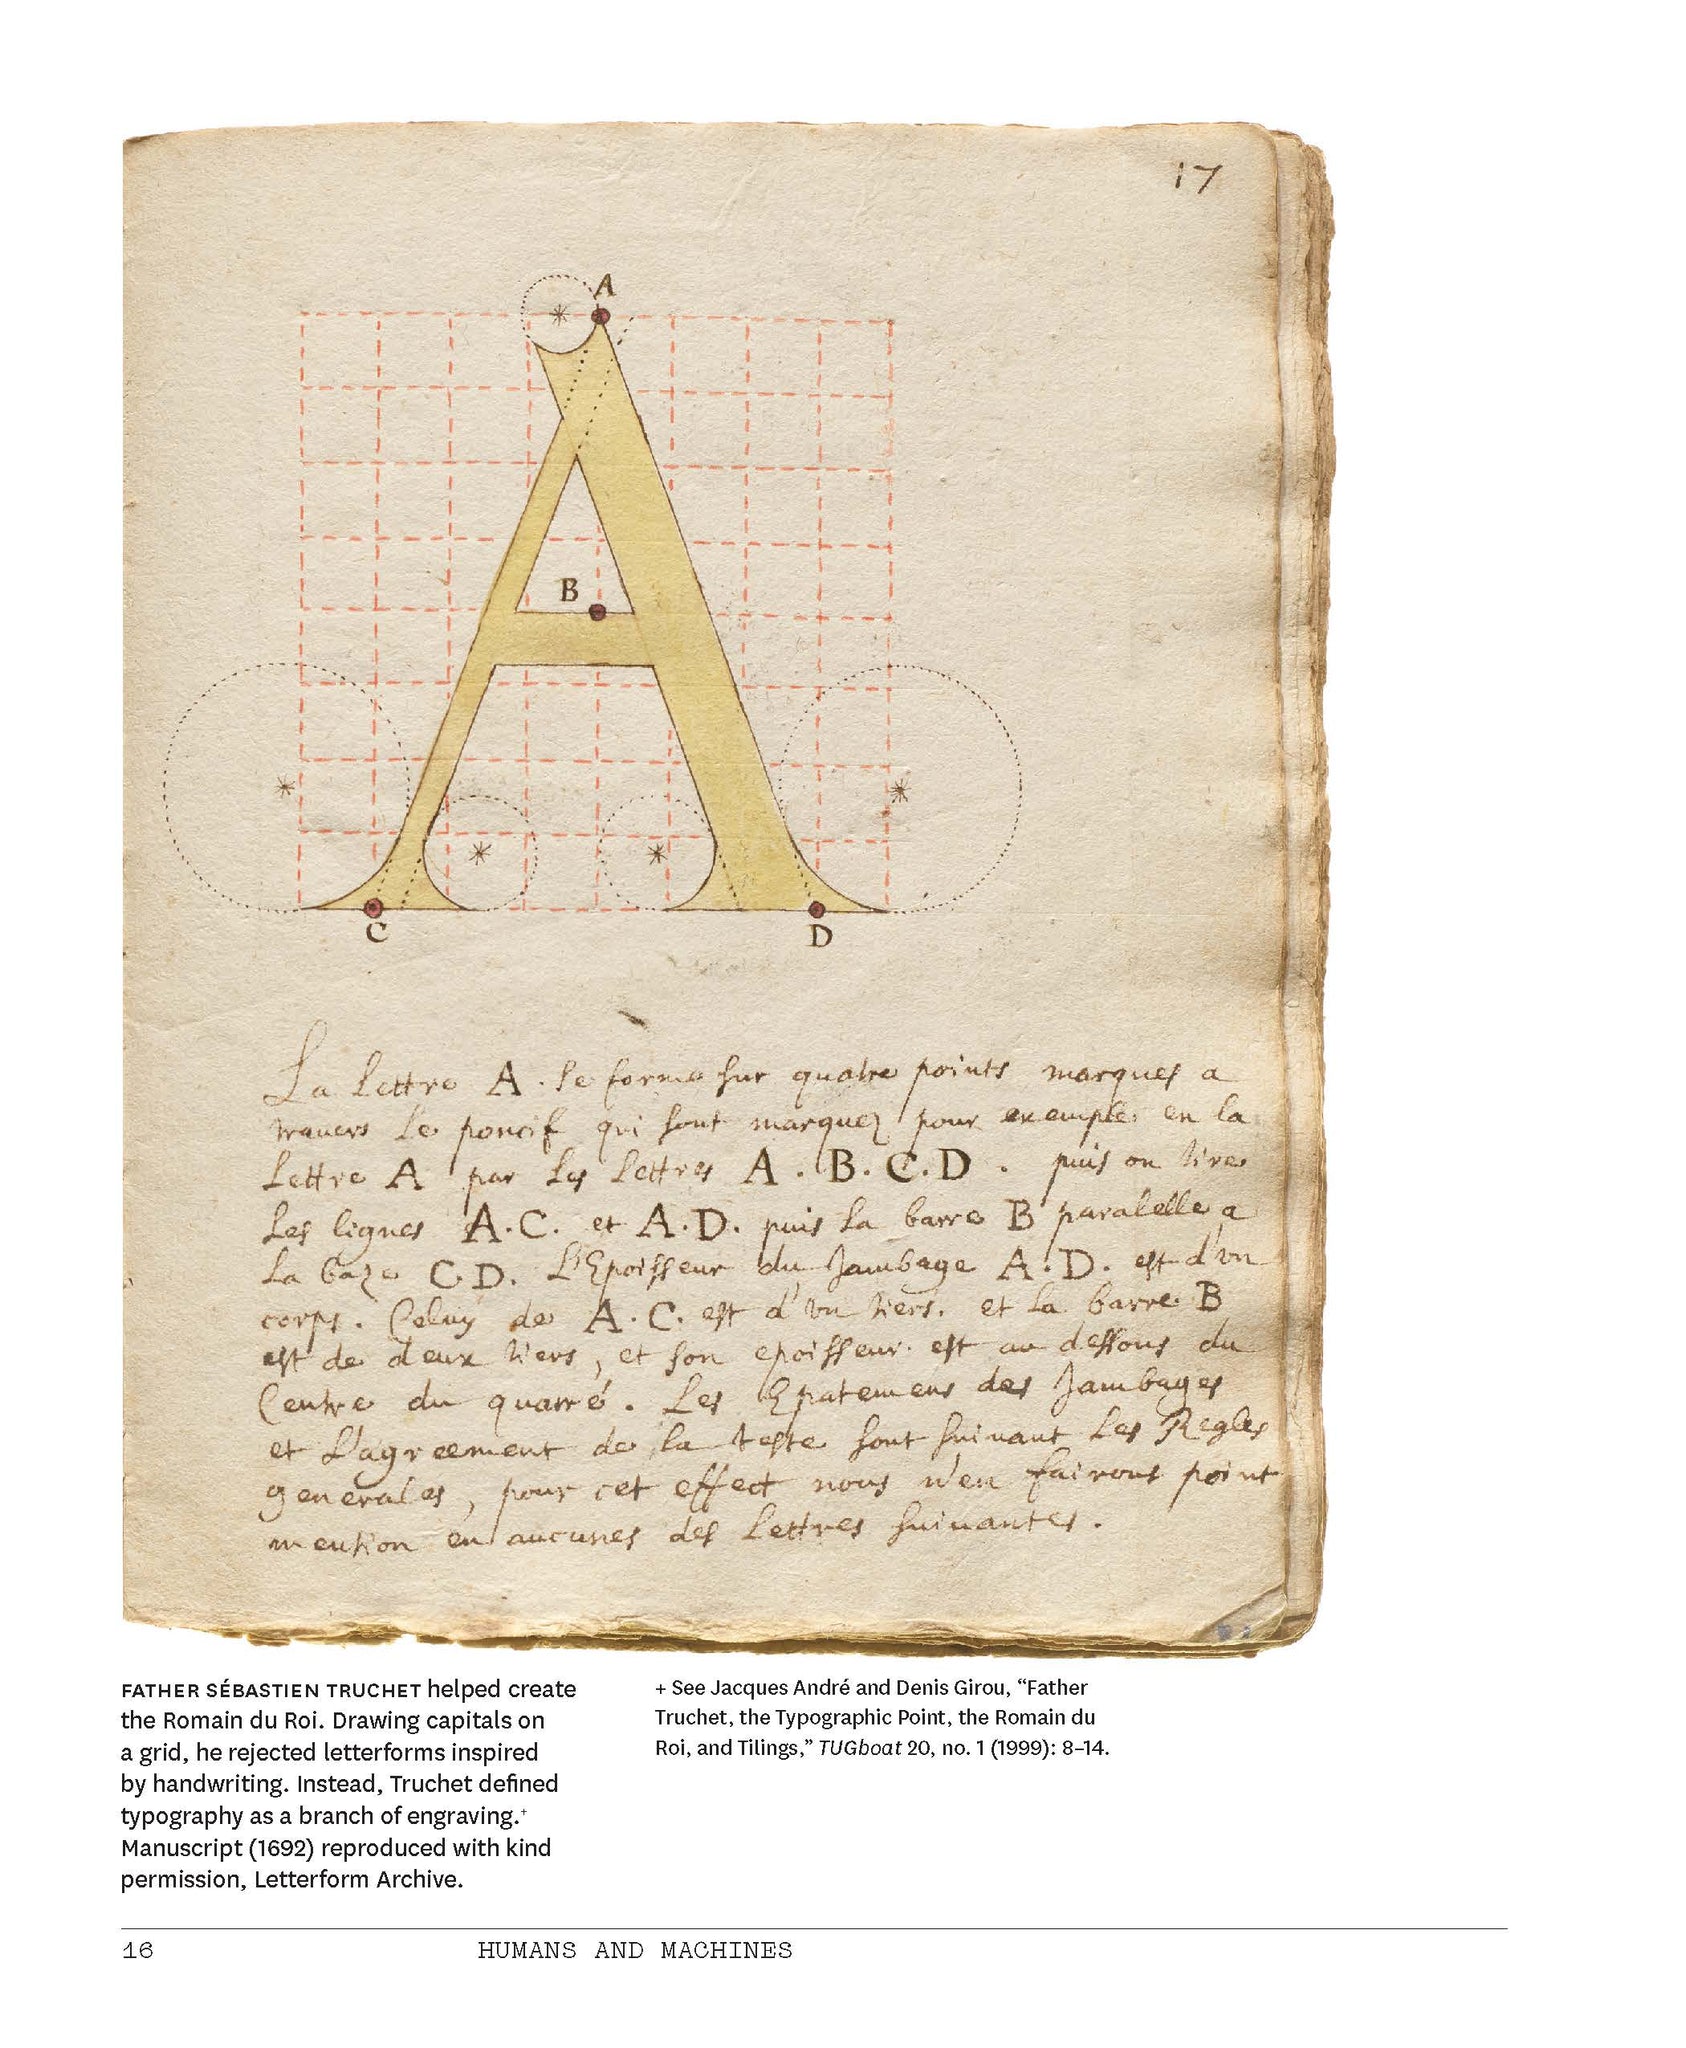 17
A
B
C
D
La lettre A. se forme sur quatre points marques a
travers le poncif qui sont marquez pour exemple en la
lettre A par les lettres A. B. C. D. puis on tire
les lignes A. C. et A. D. puis la barre B paralelle a
la baze C. D. L'Epoisseur du Jambage A. D. est d'vn
corps. Celuy de A. C. est d'vn tiers. et la barre B
est de deux tiers, et son epoisseur est au dessous du
Centre du quarré. Les Epatemens des Jambages
et L'agreement de la teste sont suivant les Regles
generales, pour cet effect nous n'en fairons point
mention en aucunes des lettres suivantes.
FATHER SÉBASTIEN TRUCHET helped create
the Romain du Roi. Drawing capitals on
a grid, he rejected letterforms inspired
by handwriting. Instead, Truchet defined
typography as a branch of engraving.+
Manuscript (1692) reproduced with kind
permission, Letterform Archive.
+ See Jacques André and Denis Girou, “Father
Truchet, the Typographic Point, the Romain du
Roi, and Tilings,” TUGboat 20, no. 1 (1999): 8–14.
16 HUMANS AND MACHINES